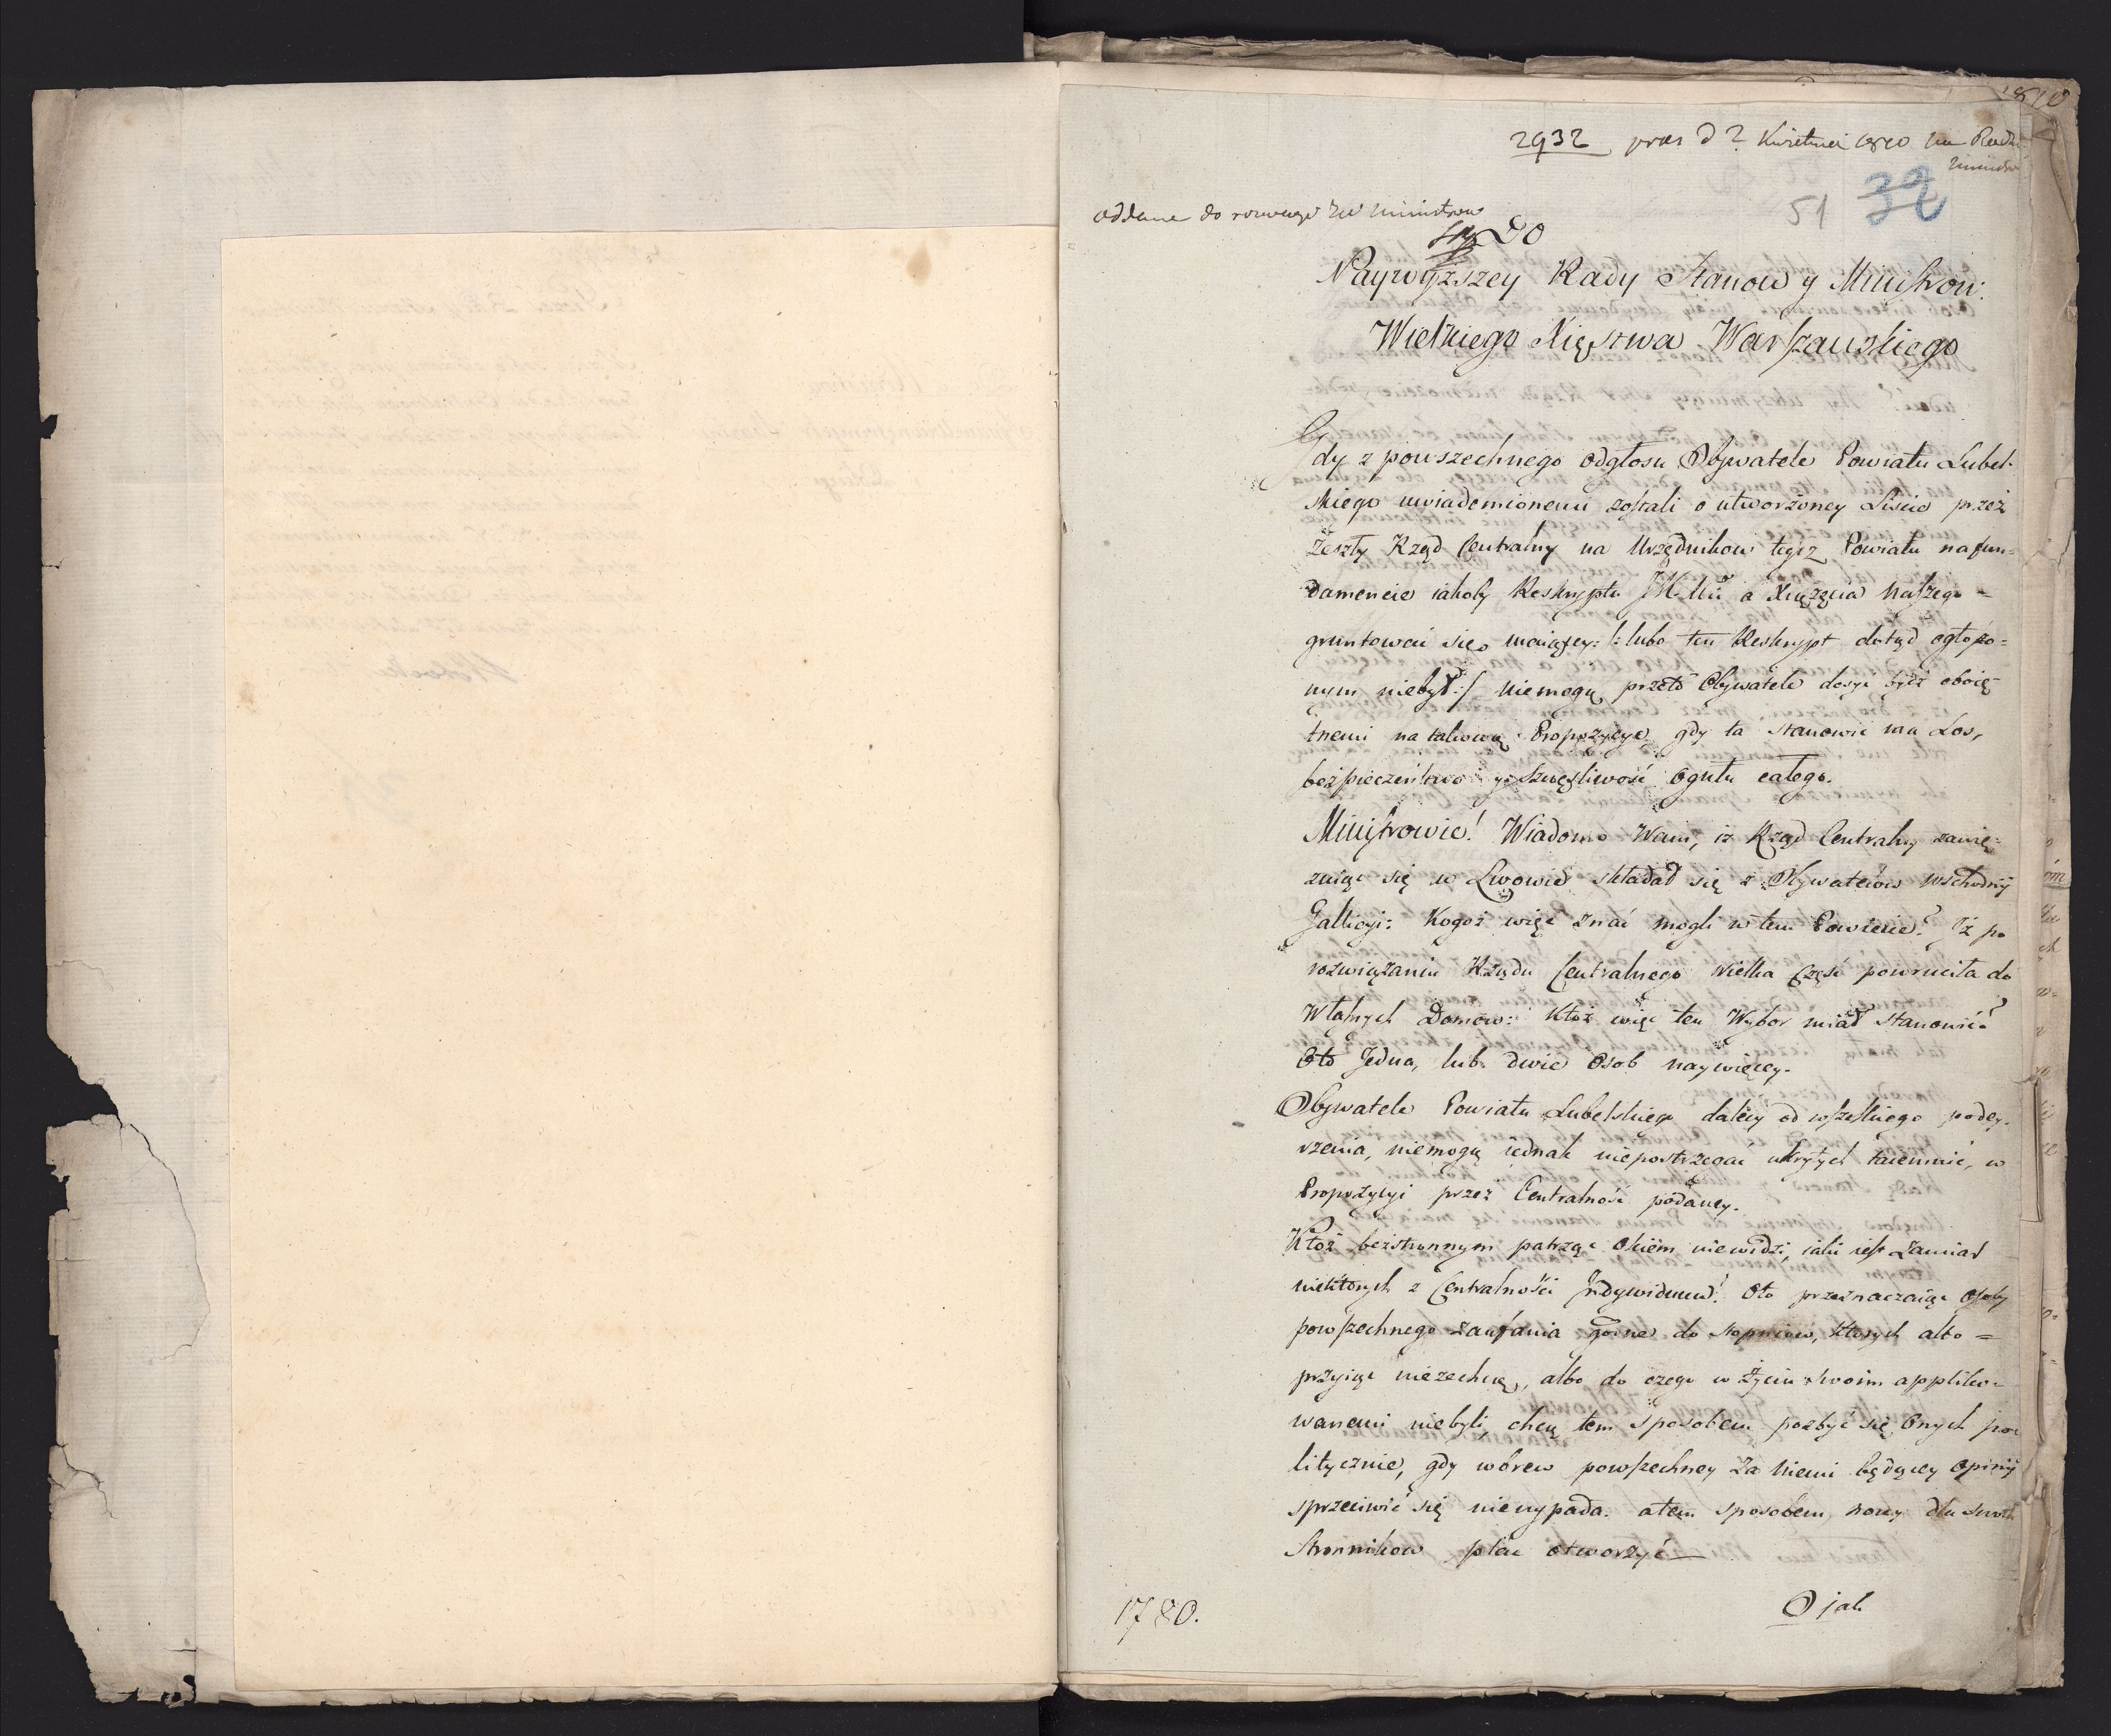 1810
2932 pras d 2 Kwietnia 1810 na Radzie
Ministr
51 32
oddane do rozwagi Rad Ministrow
Do
Naywyższey Rady Stanow y Ministrow
Wielkiego Xięstwa Warszawskiego
Gdy z powszechnego odgłosu Obywatele Powiatu Lubel-
skiego uwiadomionemi zostali o utworzoney Liście przez
Zeszły Rząd Centralny na Urzędnikow tegoż Powiatu na fun=
damencie iakoby Reskryptu JK Mci a Xiążęcia Naszego =
gruntować się maiącey: /: lubo ten Reskrypt dotąd ogłoszo=
nym niebył :/ niemogą przeto Obywatele dosyć być oboię=
tnemi na takową Propozycyę gdy ta stanowić ma Los,
bezpieczeństwo y Szczęśliwość ogułu całego.
Ministrowie! Wiadomo Wam, iż Rząd Centralny zawię=
zuiąc się w Lwowie składał się z Obywatelow wschodnij
Gallicyi: Kogoż więc znać mogli w tem Powiecie? Iż po
rozwiązaniu Rządu Centralnego wielka część powruciła do
Własnych Domow: Ktoż więc ten Wybor miał stanowić?
Oto Jedna, lub dwie Osob naywięcey.
Obywatele Powiatu Lubelskiego dalecy od wszelkiego podey-
rzenia, niemogą iednak niepostrzegać ukrytych taiemnic, w
Propozycyi przez Centralność podaney.
Ktoż bezstronnym patrząc Okiem niewidzi, iaki iest Zamiar
niektorych z Centralności Indywiduuw? Oto przeznaczaiąc Osoby
powszechnego zaufania godne do stopniow, ktorych albo =
przyiąć niezechcą, albo do czego w życiu swoim appliko-
wanemi niebyli, chcą tem sposobem pozbyć się Onych po-
litycznie, gdy wbrew powszechney za Niemi będącey opinij
sprzeciwić się niewypada. a tem sposobem nowy dla swoich
Stronnikow plac otworzyć
O jak
1780.